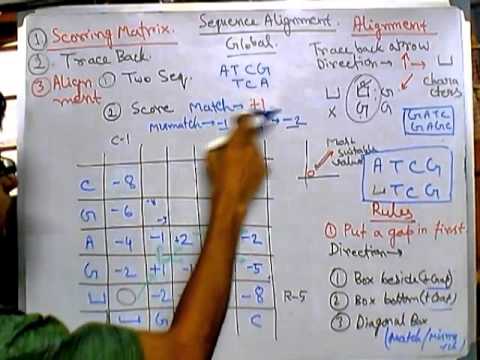 ① Scoring Matrix.
② Trace Back.
③ Alignment
Sequence Alignment.
Global
① Two Seq.
A T C G
T C A
② Score Match → +1
Mismatch → -1 → -2
C-1
C -8
G -6
A -4 -1 -2 -2
G -2 +1 -1 -5
⊔ 0 -2 -8
⊔ G C
R-5
Alignment
Trace back arrow
Direction →
characters
⊔ G G
X G G
GATC
GAGC
Most suitable value
A T C G
⊔ T C G
Rules
① Put a gap in first
Direction →
① Box beside (+Gap)
② Box bottom (+Gap)
③ Diagonal Box
(Match/Mismatch)